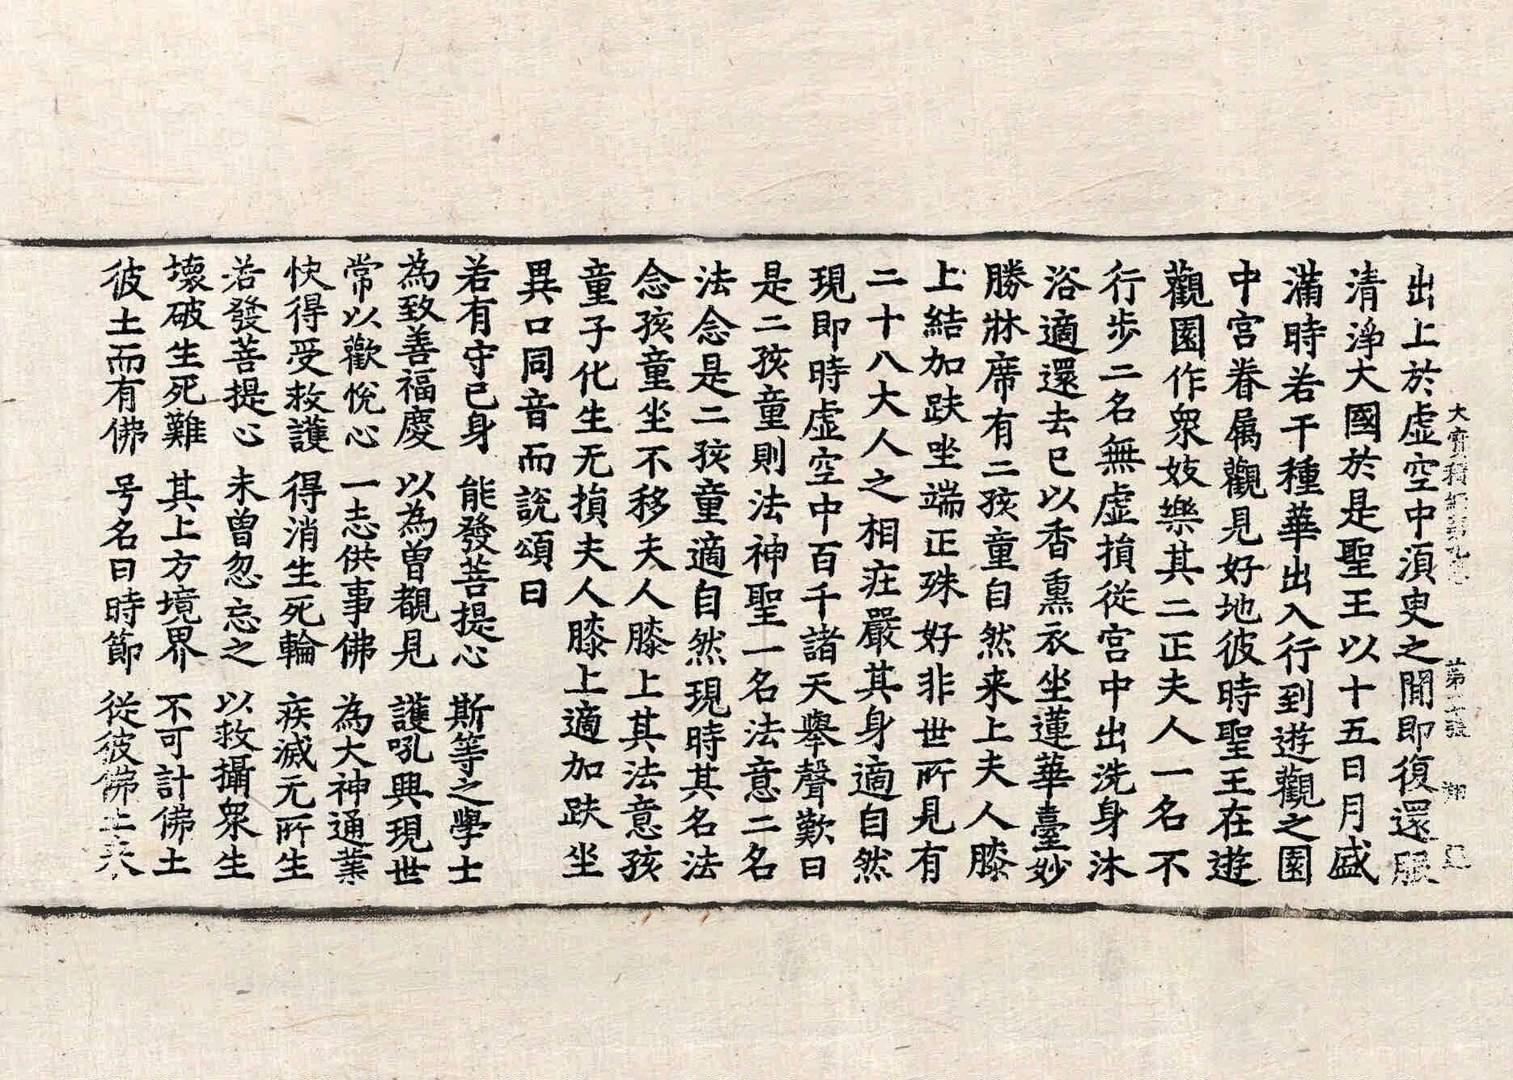 大寶積經第九卷 第 張 翔
出上於虛空中湏臾之閒即復還服
清淨大國於是聖王以十五日月盛
滿時若干種華出入行到遊觀之園
中宮眷屬觀見好地彼時聖王在遊
觀園作衆妓樂其二正夫人一名不
行步二名無虛損從宮中出洗身沐
浴適還去已以香熏衣坐蓮華臺妙
勝牀席有二孩童自然来上夫人膝
上結加趺坐端正殊好非世所見有
二十八大人之相莊嚴其身適自然
現即時虛空中百千諸天舉聲歎曰
是二孩童則法神聖一名法意二名
法念是二孩童適自然現時其名法
念孩童坐不移夫人膝上其法意孩
童子化生无損夫人膝上適加趺坐
異口同音而說頌曰
若有守已身 能發菩提心 斯等之學士
為致善福慶 以為曾覩見 護吼興現世
常以歡悅心 一志供事佛 為大神通業
快得受救護 得消生死輪 疾滅无所生
若發菩提心 未曾忽忘之 以救攝衆生
壞破生死難 其上方境界 不可計佛土
彼土而有佛 号名曰時節 從彼佛土来